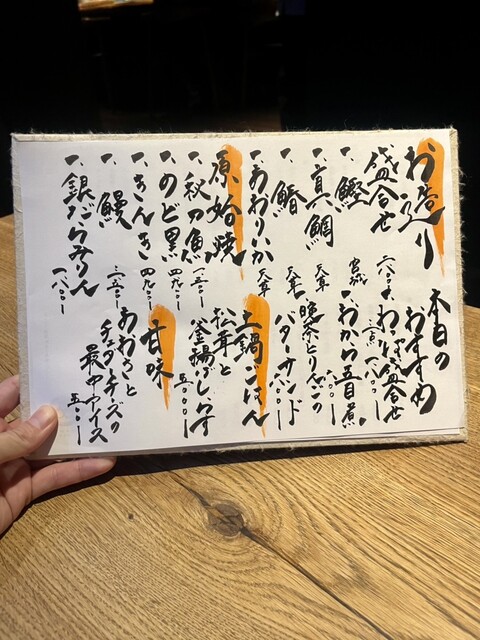 お造り
盛合せ 二八〇〇
一、鰹 宮城
一、真鯛 天草
一、鯵 天草
一、あおりいか 天草
原始焼
一、秋刀魚
一、のど黒 四九〇〇
一、きんき 四九〇〇
一、鰻
一、銀だらみりん 一八〇〇
本日の
おすすめ
盛合せ
一、わから五目煮
晩茶とりんごの
バターサンド
土鍋ごはん
松茸と
釜揚げしらす
五〇〇〇
甘味
あおさと
チェダーチーズの
最中アイス
五〇〇